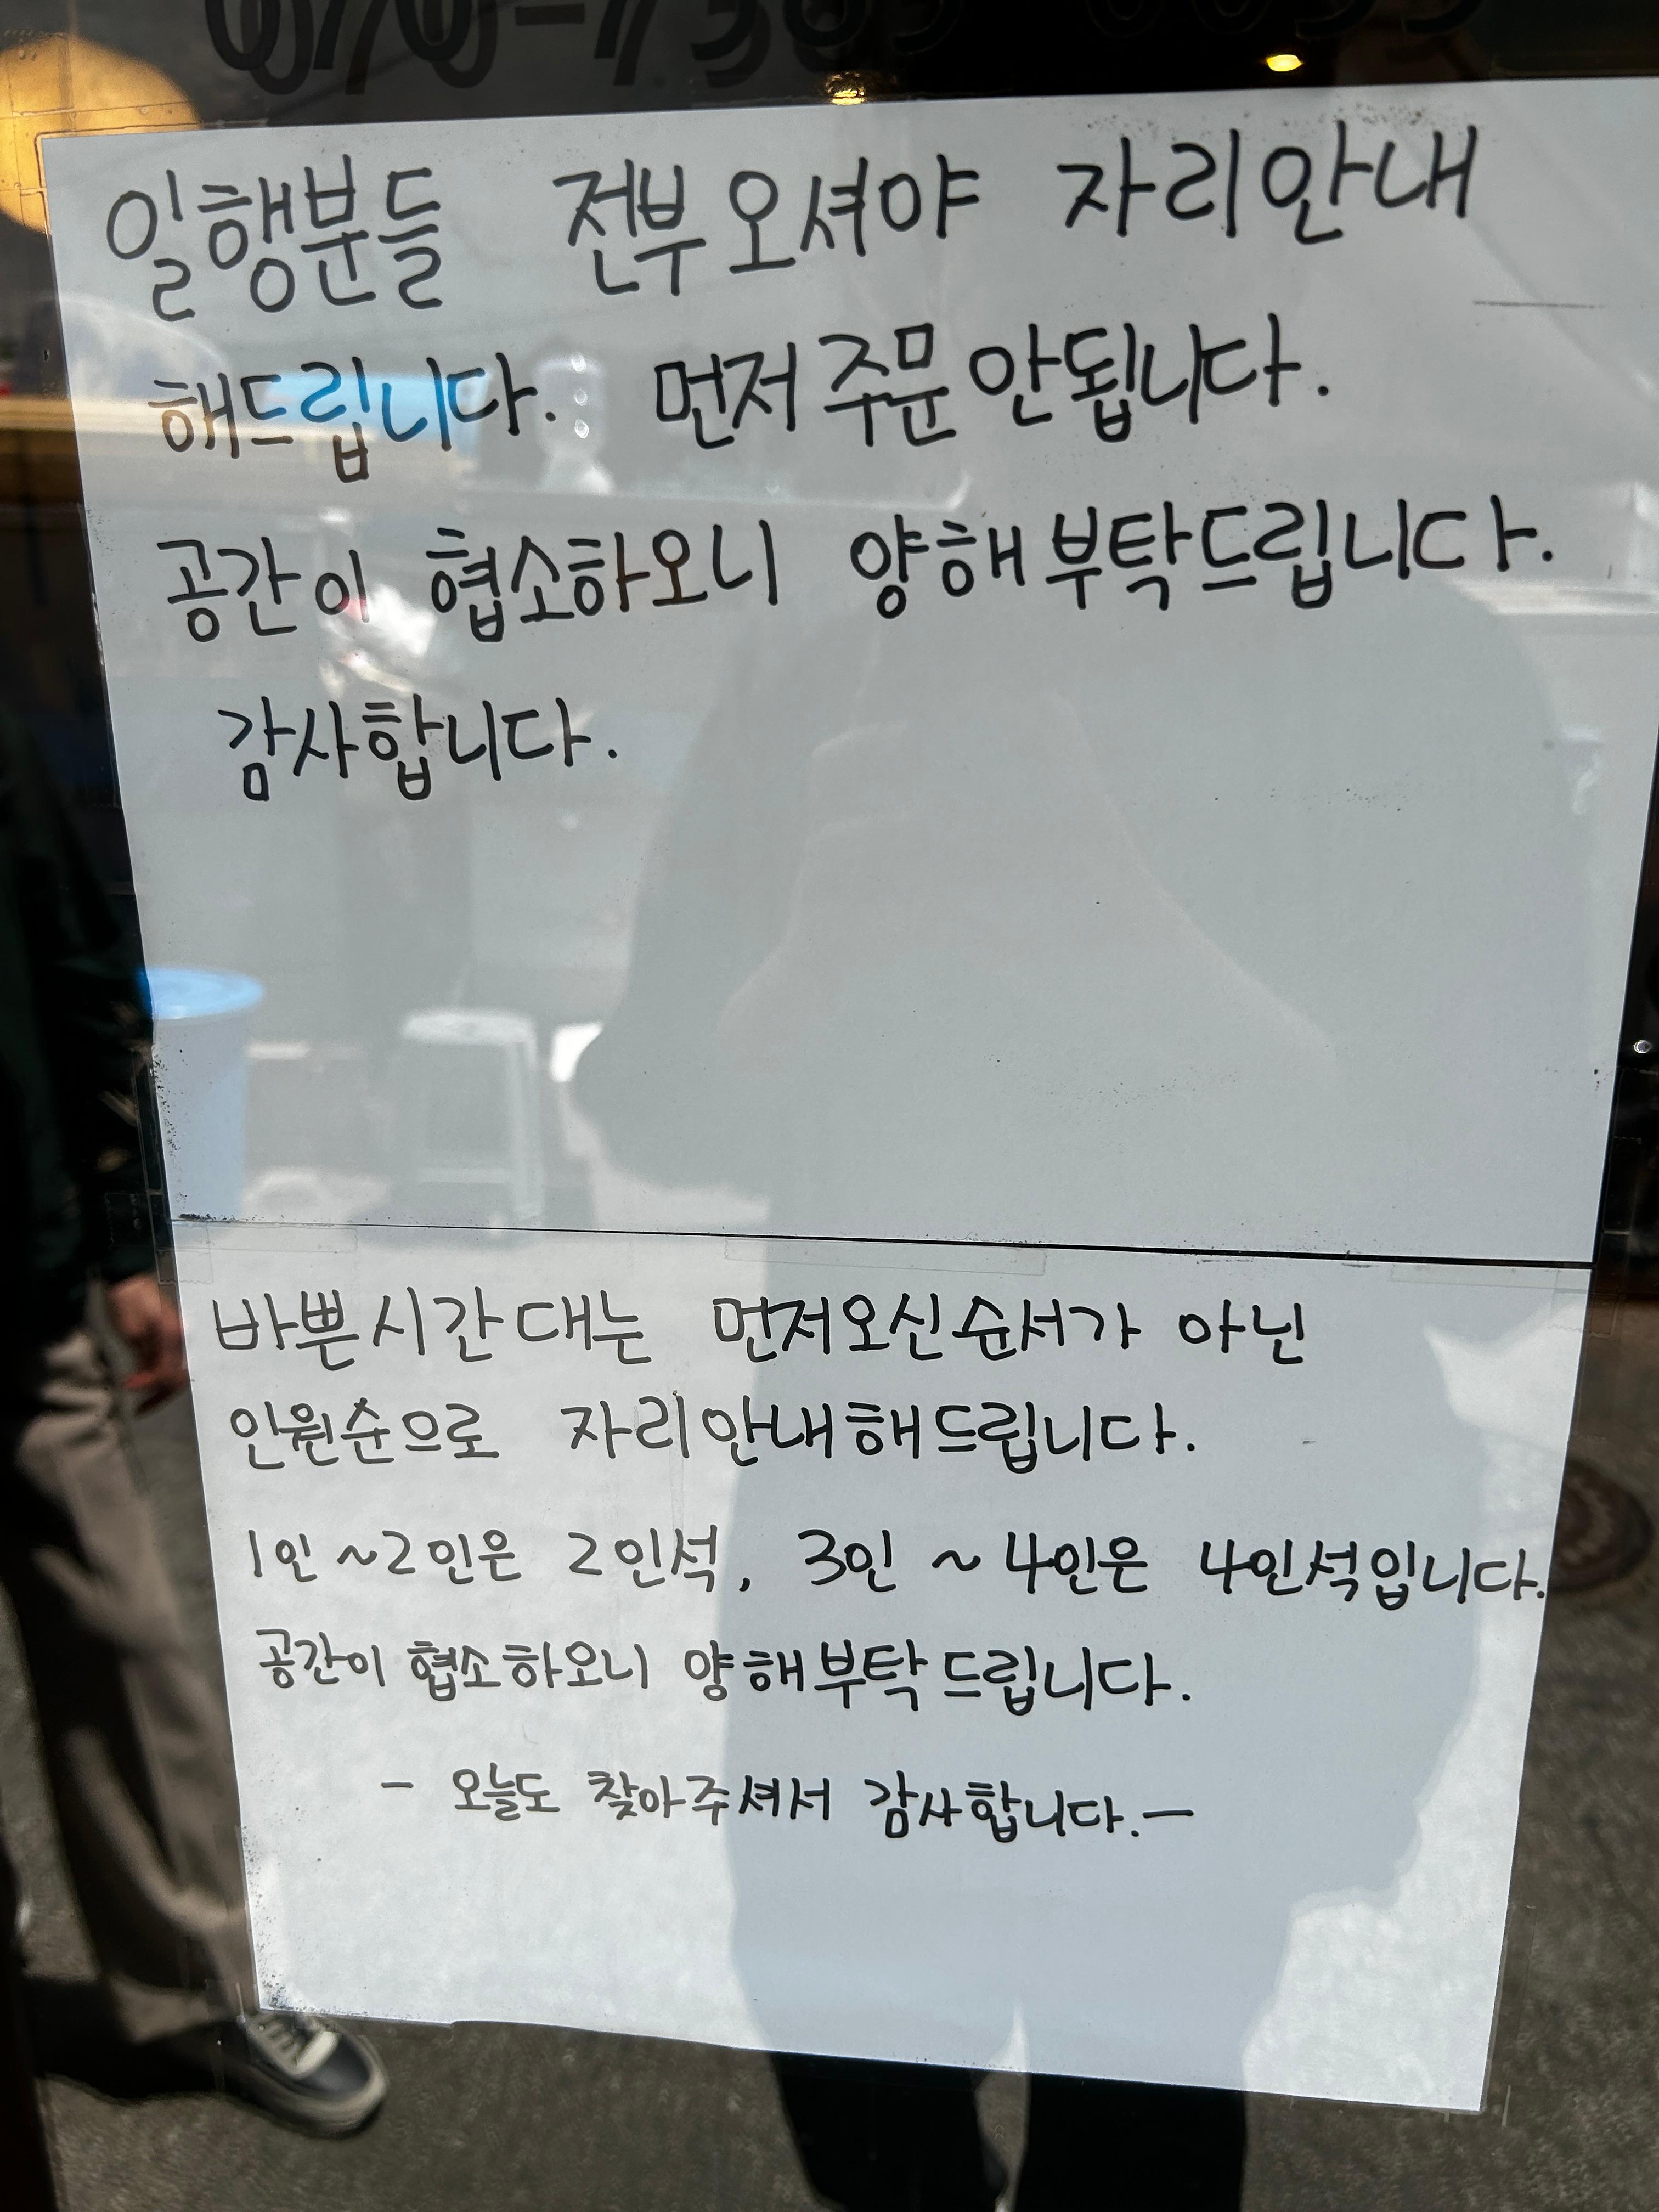 일행분들 전부오셔야 자리안내
해드립니다. 먼저 주문 안됩니다.
공간이 협소하오니 양해부탁드립니다.
감사합니다.
바쁜시간대는 먼저오신순서가 아닌
인원순으로 자리안내해드립니다.
1인~2인은 2인석, 3인~4인은 4인석입니다.
공간이 협소하오니 양해부탁드립니다.
- 오늘도 찾아주셔서 감사합니다.-